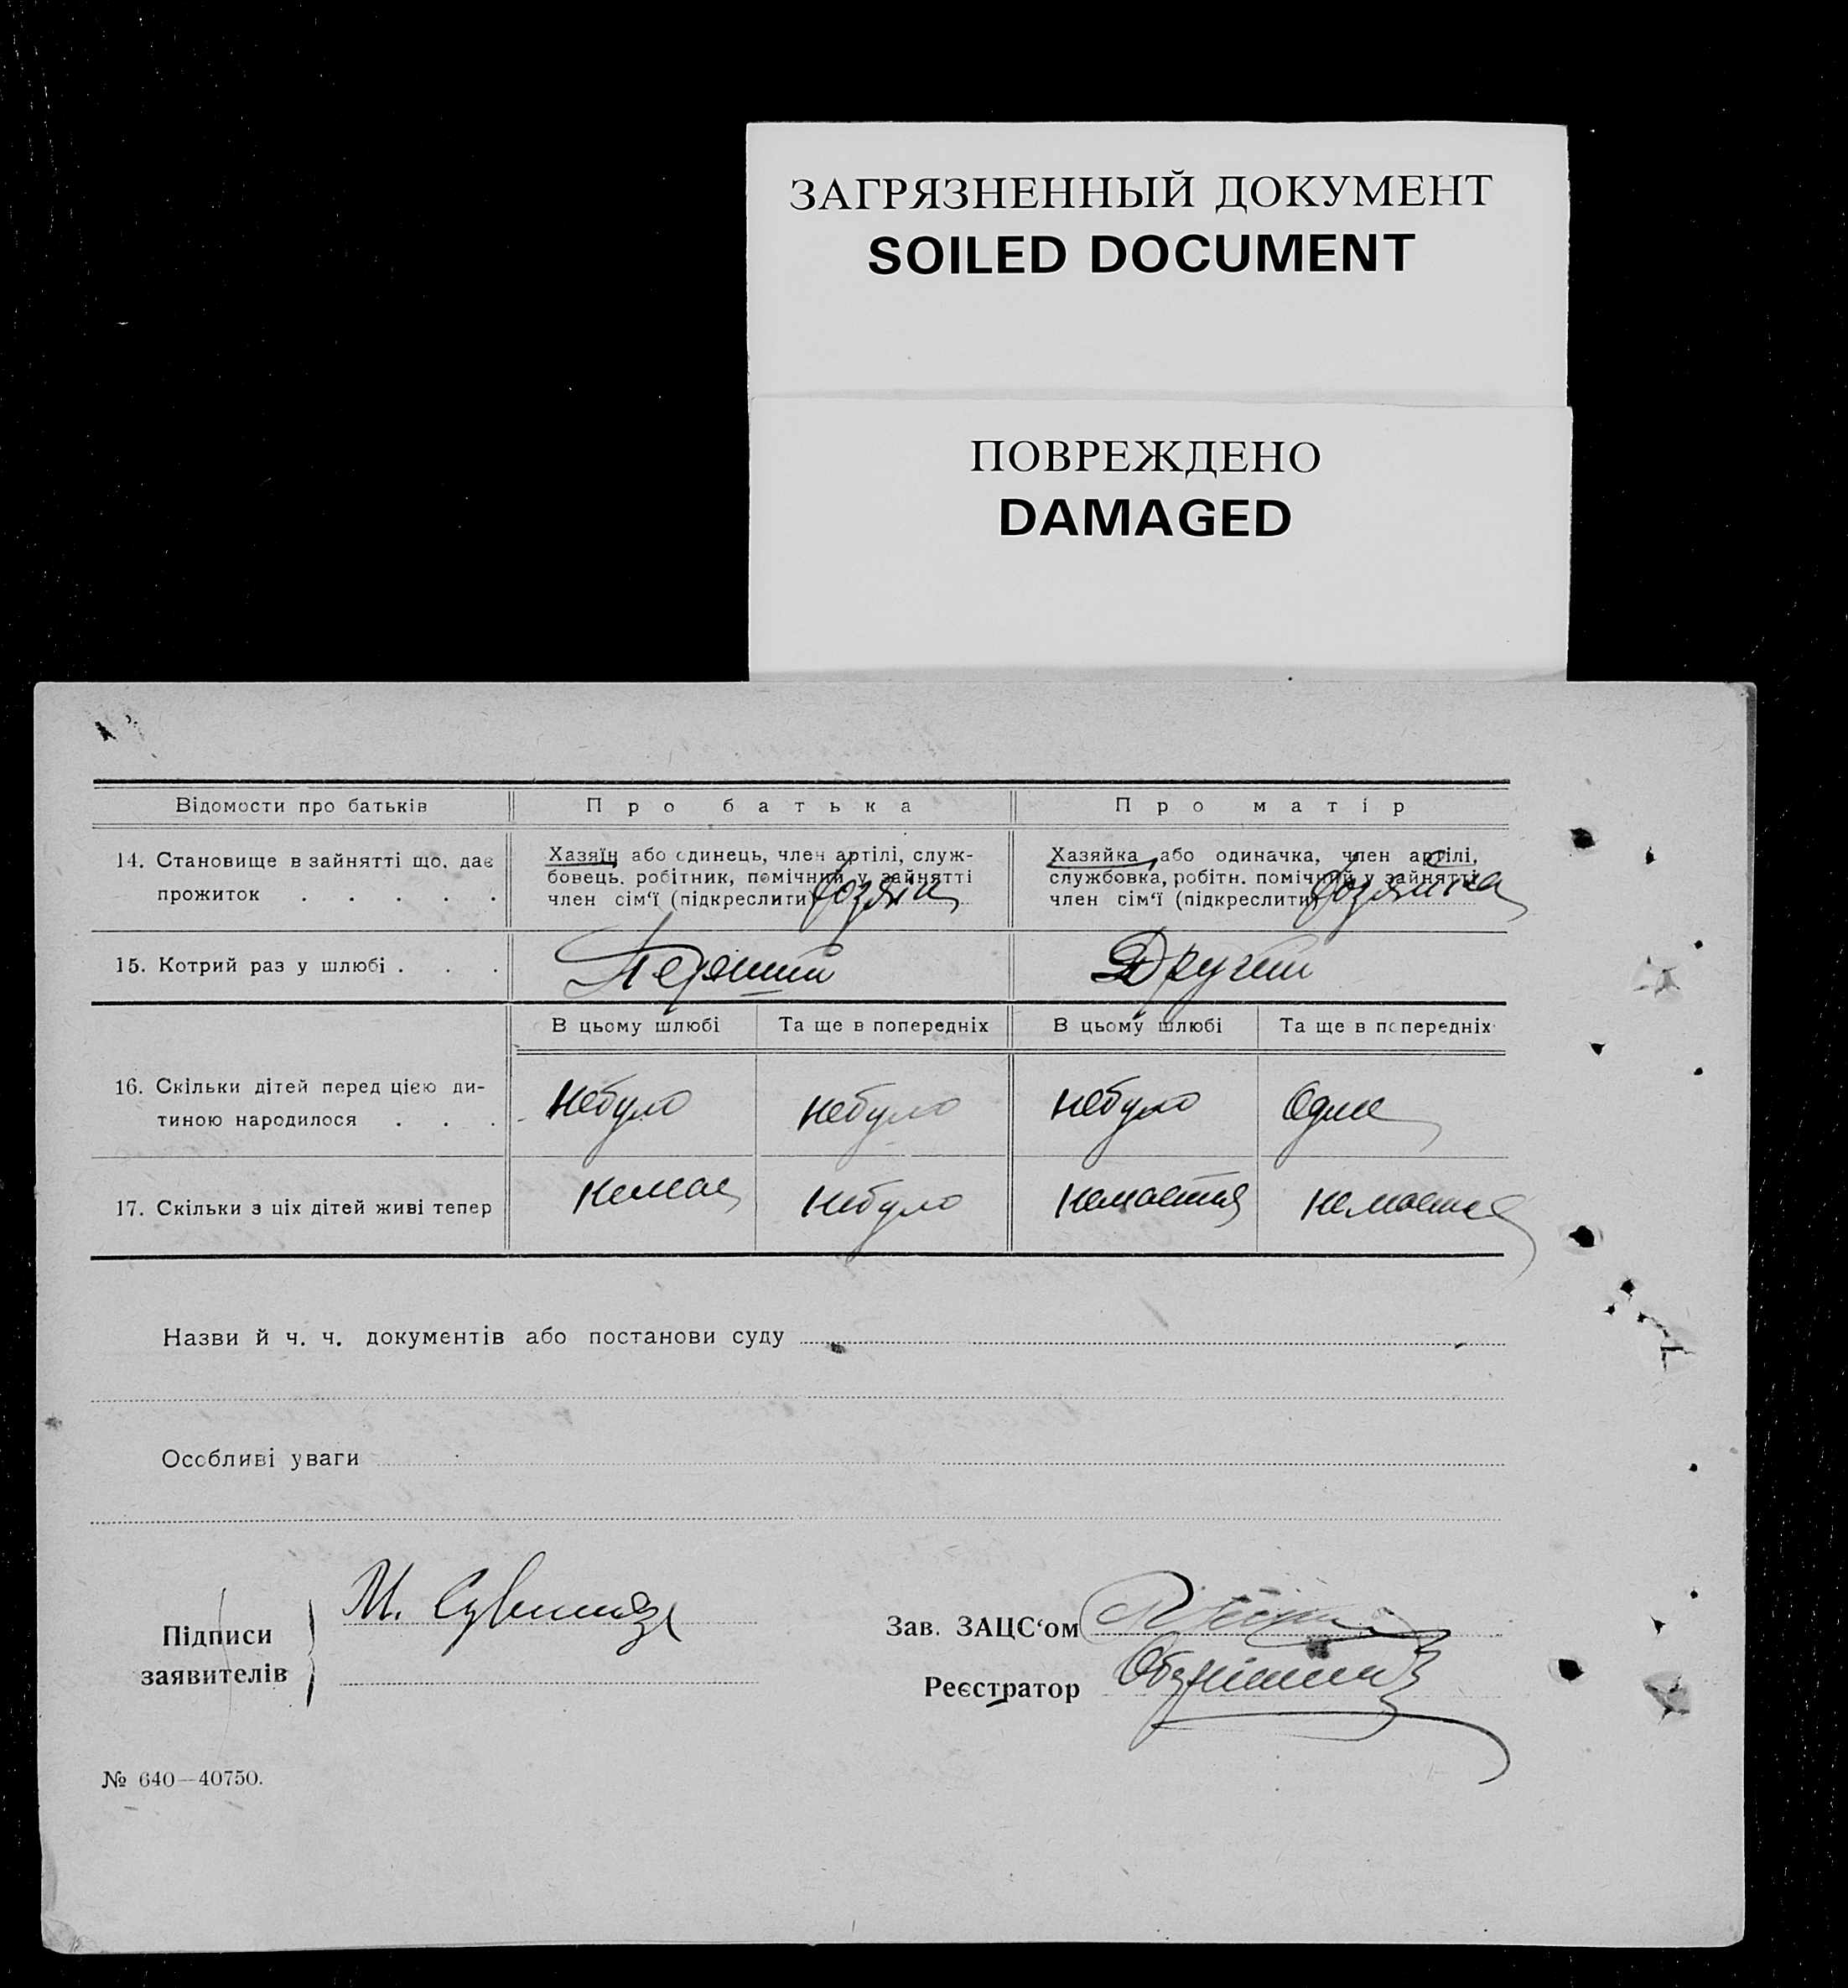 ЗАГРЯЗНЕННЫЙ ДОКУМЕНТ
SOILED DOCUMENT
ПОВРЕЖДЕНО
DAMAGED
Відомости про батьків
Про батька
Про матір
14. Становище в зайнятті що, дає
прожиток . . . . .
Хазяїн або одинець, член артілі, служ-
бовець, робітник, помічний у зайнятті
член сім'ї (підкреслити) Хозяін
Хазяйка або одиначка, член артілі,
службовка, робітн. помічний у зайнятті
член сім'ї (підкреслити) Хозяйка
15. Котрий раз у шлюбі . . .
Перший
Другий
В цьому шлюбі
Та ще в попередніх
В цьому шлюбі
Та ще в попередніх
16. Скільки дітей перед цією ди-
тиною народилося . . .
небуло
небуло
небуло
Одне
17. Скільки з ціх дітей живі тепер
немає
небуло
немается
немается
Назви й ч. ч. документів або постанови суду
Особливі уваги
Підписи
заявителів
М.
Зав. ЗАЦС'ом
Реєстратор
№ 640—40750.